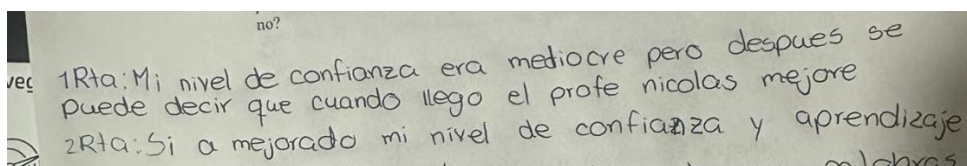 no?
1Rta: Mi nivel de confianza era mediocre pero despues se
puede decir que cuando llego el profe nicolas mejore
2Rta: Si a mejorado mi nivel de confianza y aprendizaje